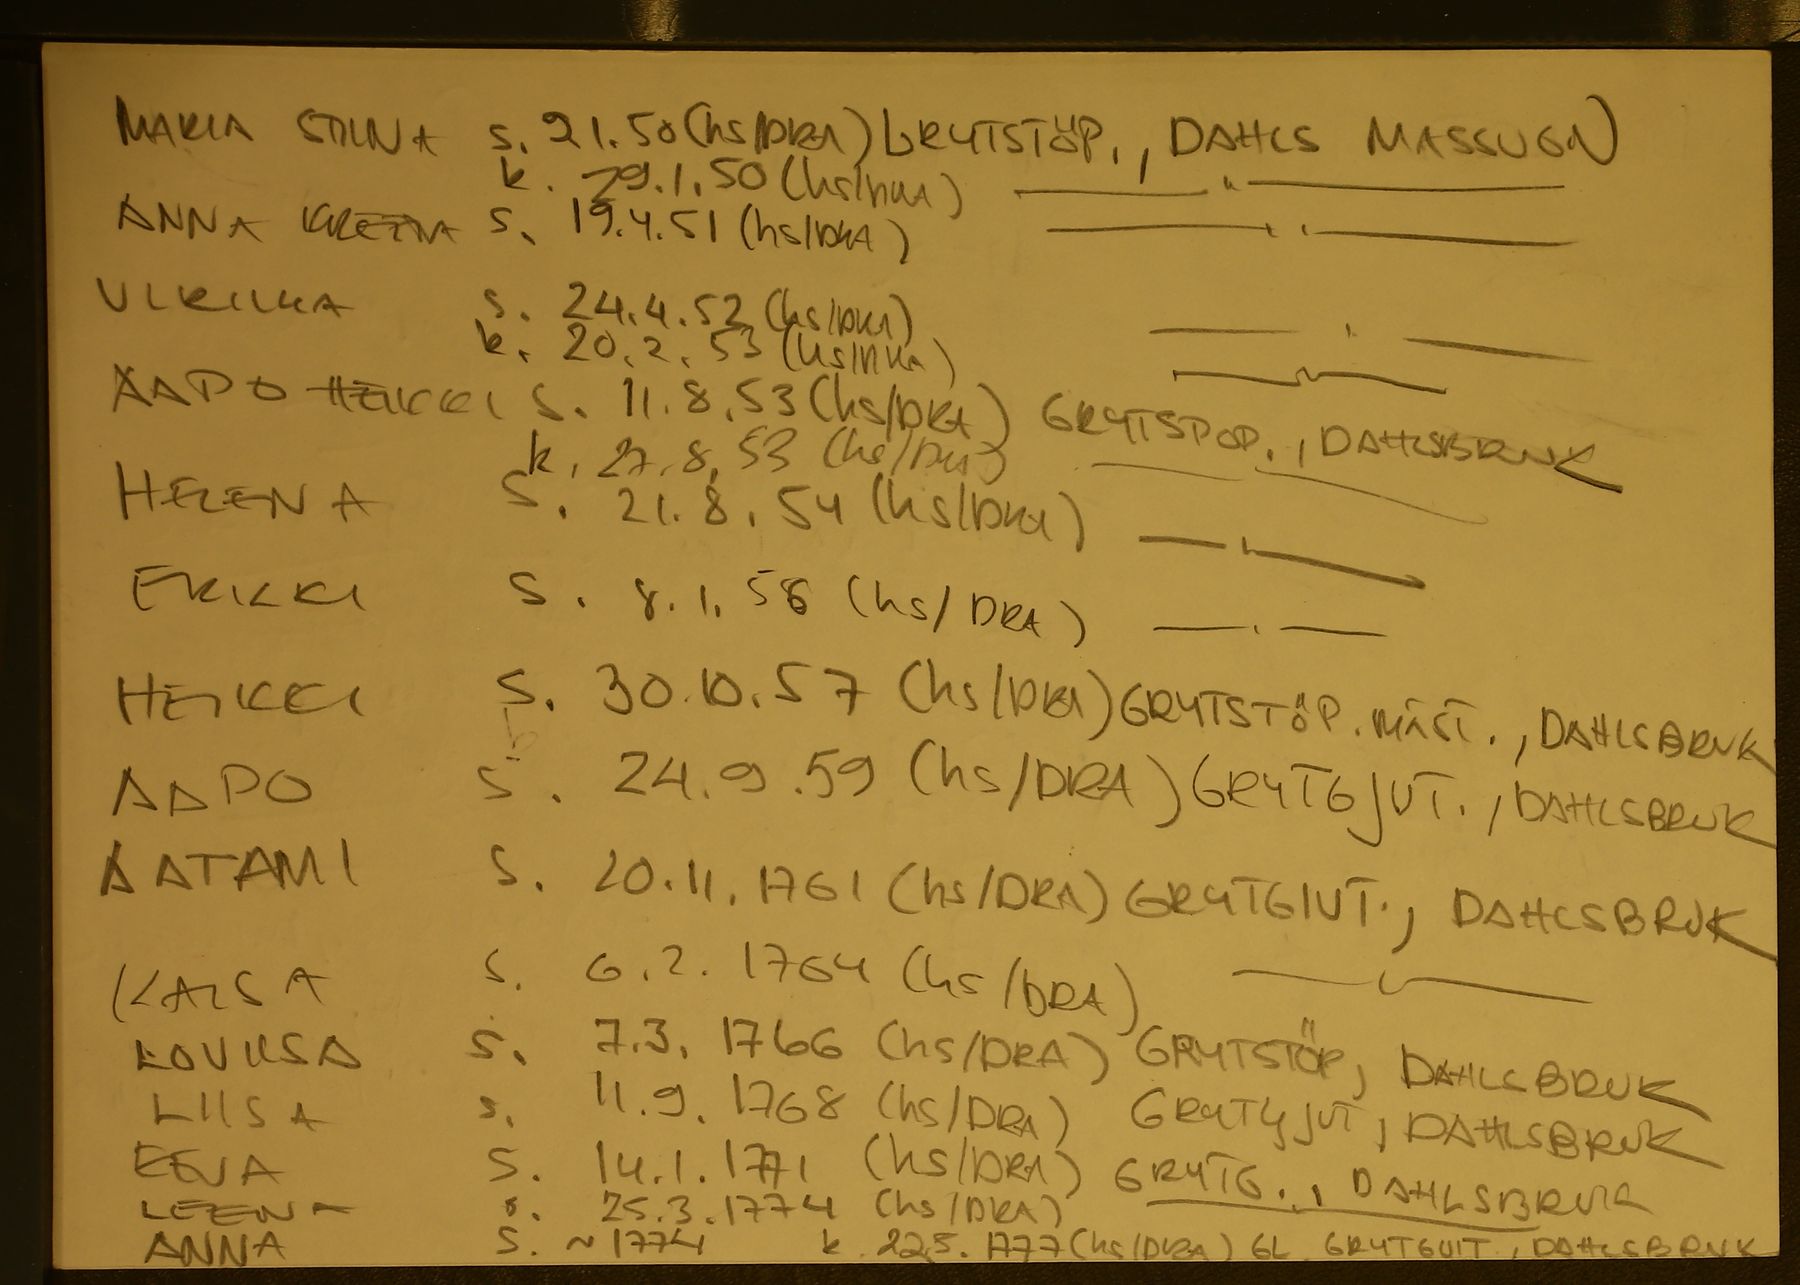 MARIA STIINA s. 21.50 (hs/DRA) GRYTSTÖP., DAHLS MASSUGN
k. 29.1.50 (hs/DRA) — " —
ANNA KREETA s. 19.4.51 (hs/DRA) — " —
ULRIIKA s. 24.4.52 (hs/DRA) — " —
k. 20.2.53 (hs/DRA) — " —
AAPO HEIKKI s. 11.8.53 (hs/DRA) GRYTSTÖP., DAHLSBRUK
k. 27.8.53 (hs/DRA) — " —
HELENA s. 21.8.54 (hs/DRA) — " —
ERIKKI s. 8.1.56 (hs/DRA) — " —
HEIKKI s. 30.10.57 (hs/DRA) GRYTSTÖP.MÄST., DAHLSBRUK
AAPO s. 24.9.59 (hs/DRA) GRYTGJUT., DAHLSBRUK
AATAMI s. 20.11.1761 (hs/DRA) GRYTGJUT., DAHLSBRUK
KAISA s. 6.2.1764 (hs/DRA) — " —
LOVIISA s. 7.3.1766 (hs/DRA) GRYTSTÖP, DAHLSBRUK
LIISA s. 11.9.1768 (hs/DRA) GRYTGJUT, DAHLSBRUK
EEVA s. 14.1.1771 (hs/DRA) GRYTG., DAHLSBRUK
LEENA s. 25.3.1774 (hs/DRA) —
ANNA s. ~1774 k. 22.5.1777 (hs/DRA) GL. GRYTGJUT., DAHLSBRUK